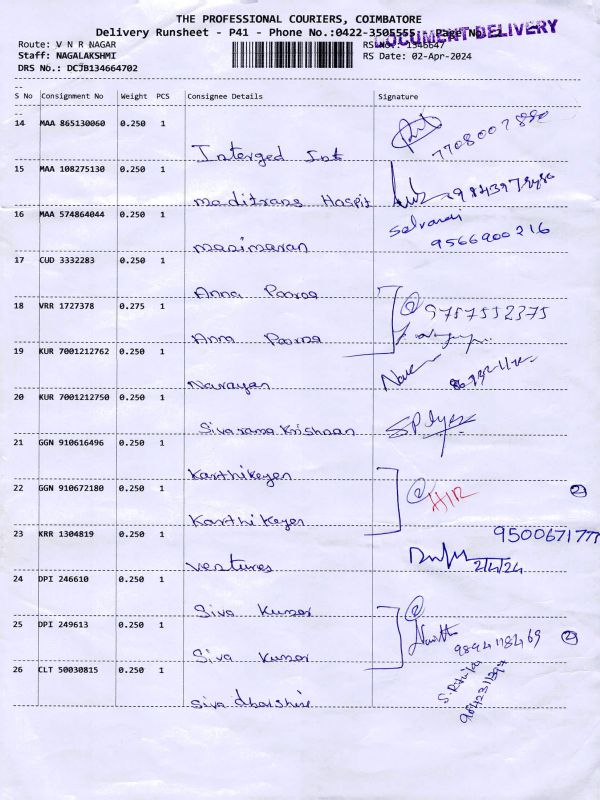 THE PROFESSIONAL COURIERS, COIMBATORE
Delivery Runsheet - P41 - Phone No.:0422-3505555, Page No.: 2
DOCUMENT DELIVERY
Route: V N R NAGAR
RS No: 1346647
Staff: NAGALAKSHMI
RS Date: 02-Apr-2024
DRS No.: DCJB134664702
S No Consignment No Weight PCS Consignee Details Signature
14 MAA 865130060 0.250 1
Interged Int
15 MAA 108275130 0.250 1
maditrans Hospit
16 MAA 574864044 0.250 1
Selvarani
9566900216
manimaran
17 CUD 3332283 0.250 1
Anna Poorna
18 VRR 1727378 0.275 1
@ 9757552375
Anna Poorna
19 KUR 7001212762 0.250 1
Narayan
20 KUR 7001212750 0.250 1
Sivaramakrishnan
SP Iyer
21 GGN 910616496 0.250 1
Karthikeyen
22 GGN 910672180 0.250 1
@ H/R
2
Karthikeyen
23 KRR 1304819 0.250 1
9500671777
ventures
2/4/24
24 DPI 246610 0.250 1
Siva Kumar
@
25 DPI 249613 0.250 1
9894118469
2
Siva Kumar
26 CLT 50030815 0.250 1
Siva dharshini